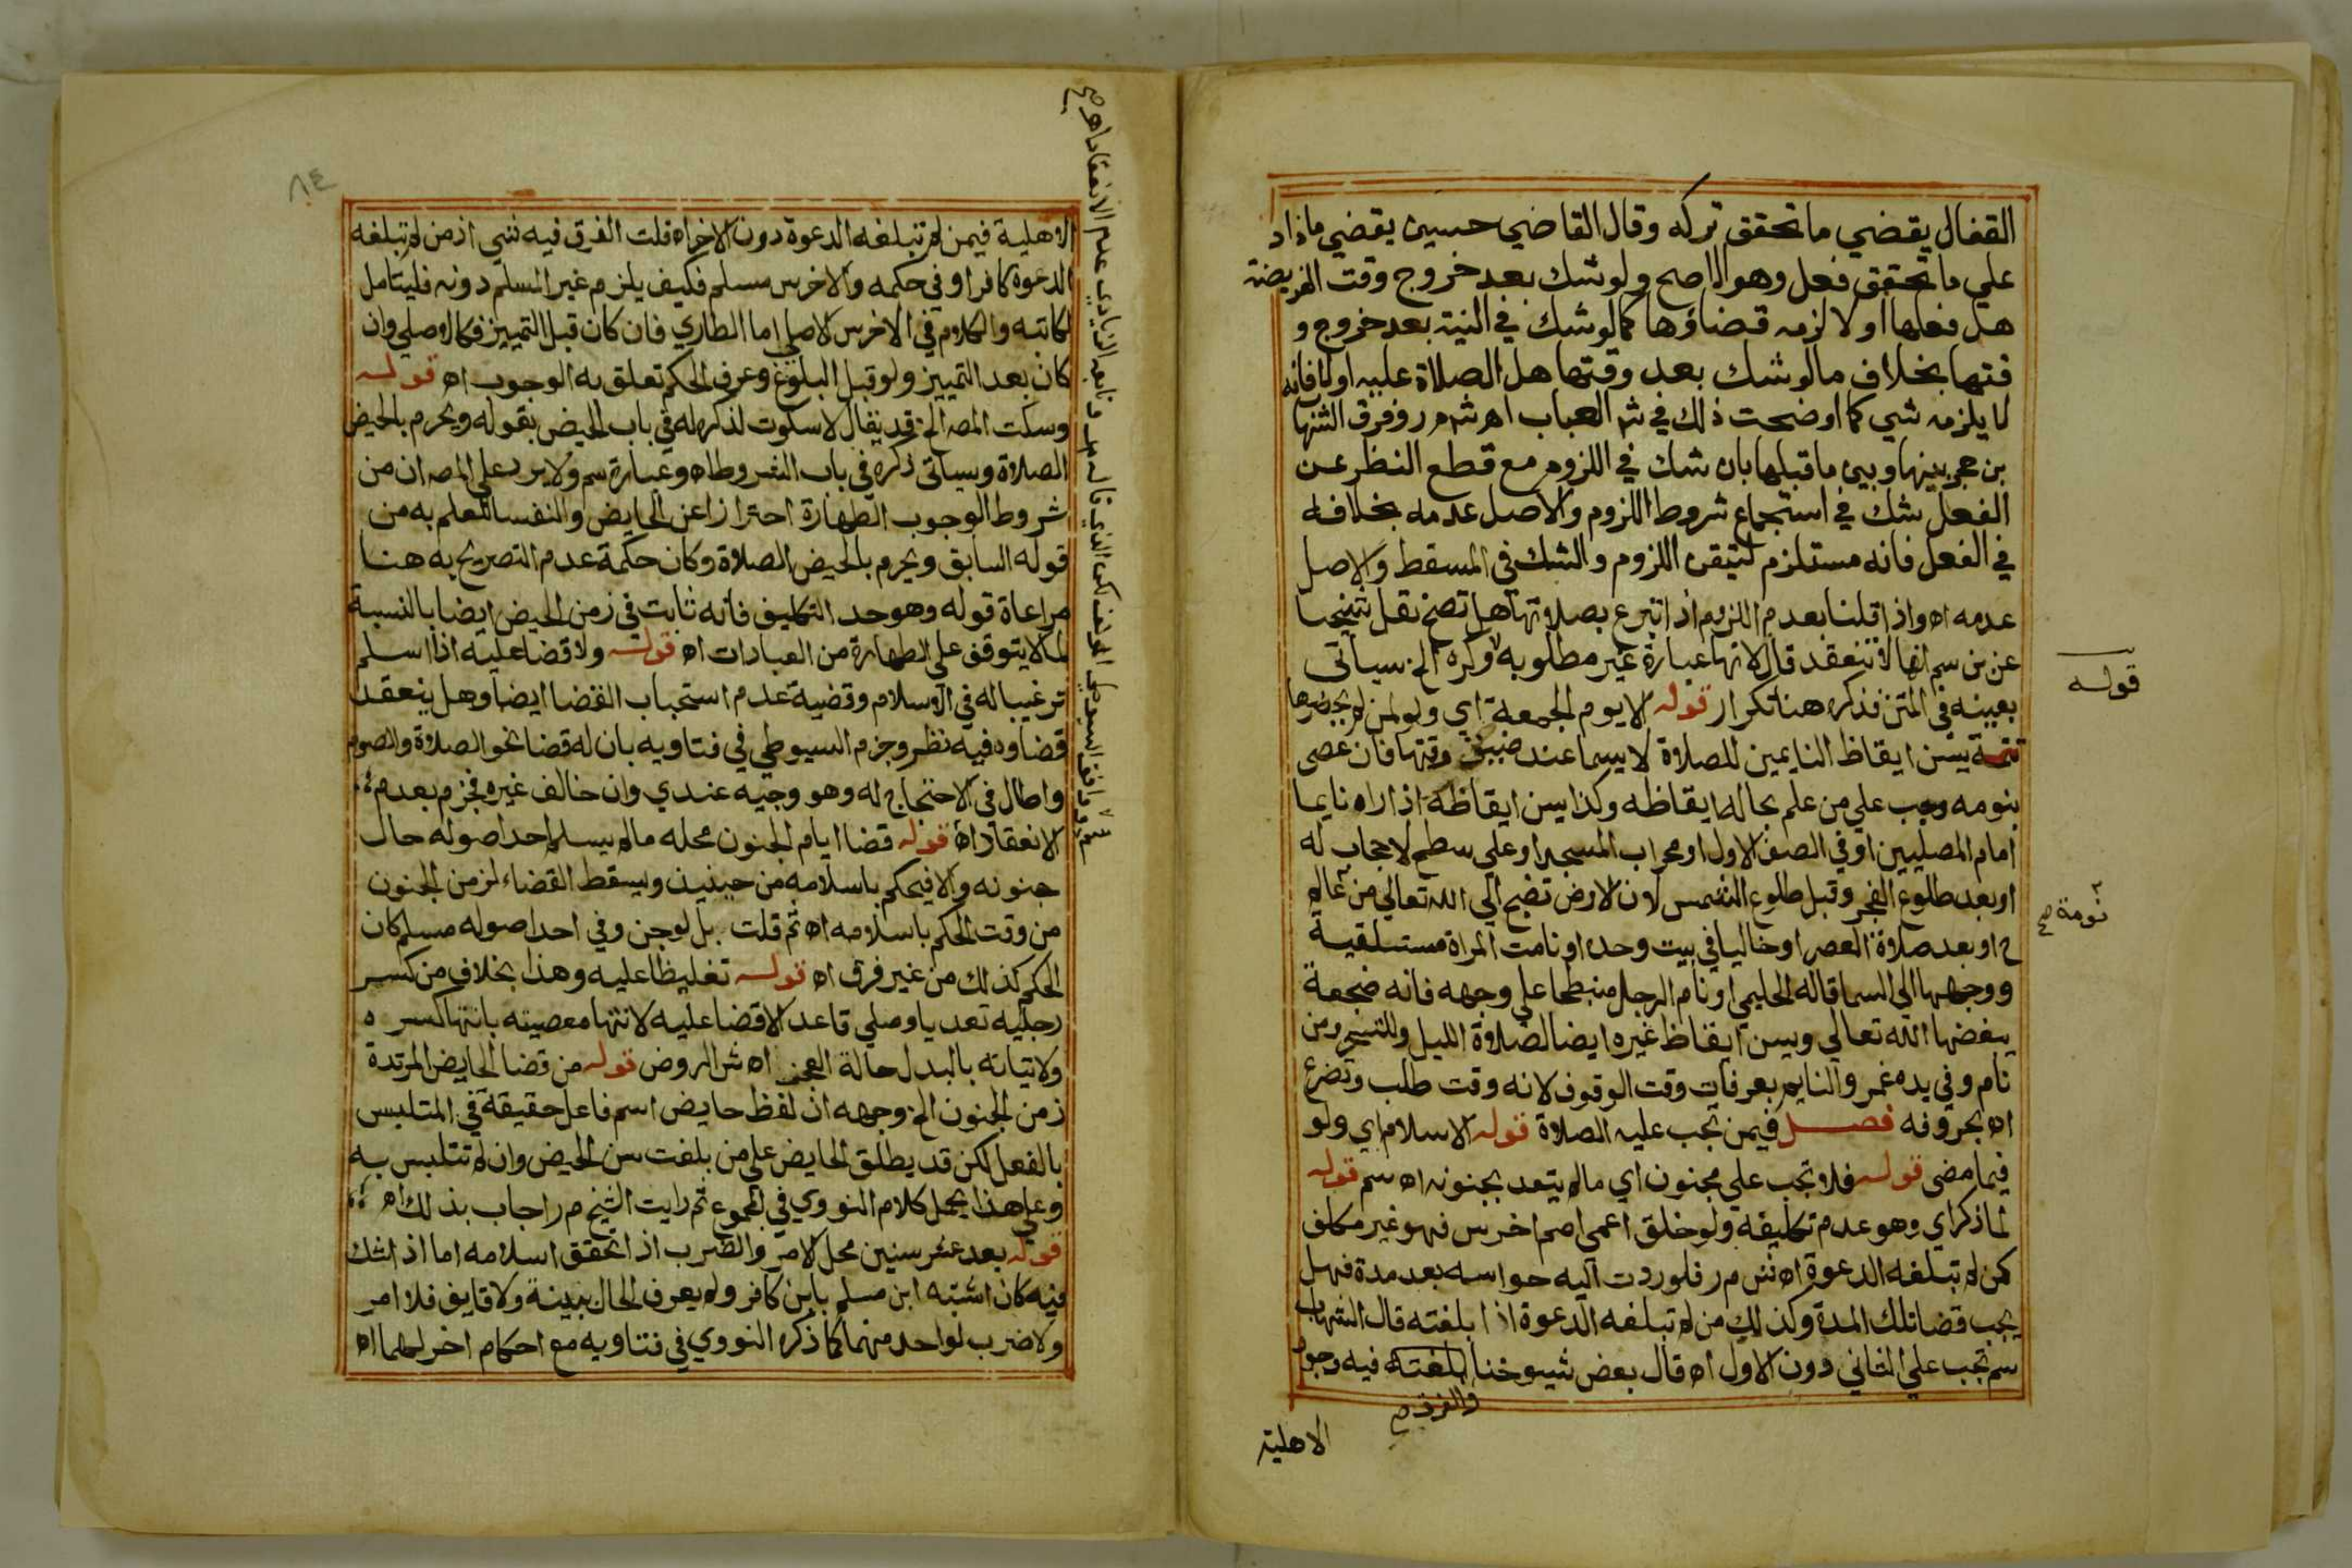 القفال يقضي ما تحقق تركه وقال القاضي حسين يقضي ما زاد
علي ما تحقق فعل وهو الاصح ولو شك بعد خروج وقت الفريضة
هل فعلها او لا لزمه قضاؤها كما لو شك في النية بعد خروج و
قتها بخلاف ما لو شك بعد وقتها هل الصلاة عليه اولا فانه
لا يلزمه شي كما اوضحت ذلك في شر العباب اه ش م ر وفرق الشها
بن حجر بينها وبين ما قبلها بان شك في اللزوم مع قطع النظر عن
الفعل شك في استجماع شروط اللزوم والاصل عدمه بخلافه
في الفعل فانه مستلزم لتيقن اللزوم والشك في المسقط والاصل
عدمه اه واذا قلنا بعدم اللزوم اذا تبرع بصلاتها هل تصح نقل شيخنا
عن بن سم انها لا تنعقد قال لانها عبارة غير مطلوبه وكره الخ سياتي
قوله
بعينه في المتن فذكره هنا تكرار قوله الا يوم الجمعة اي ولو لمن لم يحضرها
تتمة يسن ايقاظ النايمين للصلاة لا سيما عند ضيق وقتها فان عصى
بنومه وجب علي من علم بحاله ايقاظه وكذا يسن ايقاظه اذا راه نايما
امام المصليين او في الصف الاول او محراب المسجد او علي سطح لا حجاب له
او بعد طلوع الفجر وقبل طلوع الشمس لان الارض تضج الي الله تعالي من عالم
نومة صح
ح او بعد صلاة العصر او خاليا في بيت وحده او نامت المراة مستلقية
ووجهها الي السما قاله الحليمي او نام الرجل منبطحا علي وجهه فانه ضجعة
يبغضها الله تعالي ويسن ايقاظ غيره ايضا لصلاة الليل وللتسحر ومن
نام وفي يده غمر والنايم بعرفات وقت الوقوف لانه وقت طلب وتضرع
اه بحروفه فصل فيمن تجب عليه الصلاة قوله الاسلام اي ولو
فيما مضى قوله فلا تجب علي مجنون اي ما لم يتعد بجنونه اه سم قوله
لما ذكر اي وهو عدم تكليفه ولو خلق اعمي اصم اخرس فهو غير مكلف
كمن لم تبلغه الدعوة اه ش م ر فلو ردت اليه حواسه بعد مدة فهل
يجب قضا تلك المدة وكذلك من لم تبلغه الدعوة اذا بلغته قال الشهاب
سم تجب علي الثاني دون الاول اه قال بعض شيوخنا بلغته فيه وجود
والفرق صح
الاهلية
٨٤
الاهلية فيمن لم تبلغه الدعوة دون الاخر اه قلت الفرق فيه شي اذ من لم تبلغه
الدعوة كافر او في حكمه والاخرس مسلم فكيف يلزم غير المسلم دونه فليتامل
لكاتبه والكلام في الاخرس الاصلي اما الطاري فان كان قبل التمييز فكالاصلي وان
كان بعد التمييز ولو قبل البلوغ وعرف الحكم تعلق به الوجوب اه قوله
وسكت المص الخ قد يقال لا سكوت لذكره له في باب الحيض بقوله ويحرم بالحيض
الصلاة وسياتي ذكره في باب الشروط اه وعبارة سم ولا يرد علي المص ان من
شروط الوجوب الطهارة احترازا عن الحايض والنفسا للعلم به من
قوله السابق ويحرم بالحيض الصلاة وكان حكمة عدم التصريح به هنا
مراعاة قوله وهو حد التكليف فانه ثابت في زمن الحيض ايضا بالنسبة
لما لا يتوقف علي الطهارة من العبادات اه قوله ولا قضا عليه اذا اسلم
ترغيبا له في الاسلام وقضية عدم استحباب القضا ايضا وهل ينعقد
قضاوه فيه نظر وجزم السيوطي في فتاويه بان له قضا نحو الصلاة والصوم
واطال في الاحتجاج له وهو وجيه عندي وان خالف غيره فجزم بعدم
الانعقاد اه قوله قضا ايام الجنون محله ما لم يسلم احد اصوله حال
جنونه والا فيحكم باسلامه من حينيذ ويسقط القضاء لزمن الجنون
من وقت الحكم باسلامه اه ثم قلت بل لو جن وفي احد اصوله مسلم كان
الحكم كذلك من غير فرق اه قوله تغليظا عليه وهذا بخلاف من كسر
رجليه تعديا وصلي قاعدا لا قضا عليه لانتها معصيته بانتها كسره
ولاتيانه بالبدل حالة العجز اه ش الروض قوله من قضا الحايض المرتدة
زمن الجنون الخ وجهه ان لفظ حايض اسم فاعل حقيقة في المتلبس
بالفعل لكن قد يطلق الحايض علي من بلغت سن الحيض وان لم تتلبس به
وعلي هذا يحمل كلام النووي في المجموع ثم رايت الشيخ م ر اجاب بذلك اه
قوله بعد عشر سنين محل الامر والضرب اذا تحقق اسلامه اما اذا شك
فيه كان اشتبه ابن مسلم بابن كافر ولم يعرف الحال ببينة ولا قايف فلا امر
ولا ضرب لواحد منهما كما ذكره النووي في فتاويه مع احكام اخر لهما اه